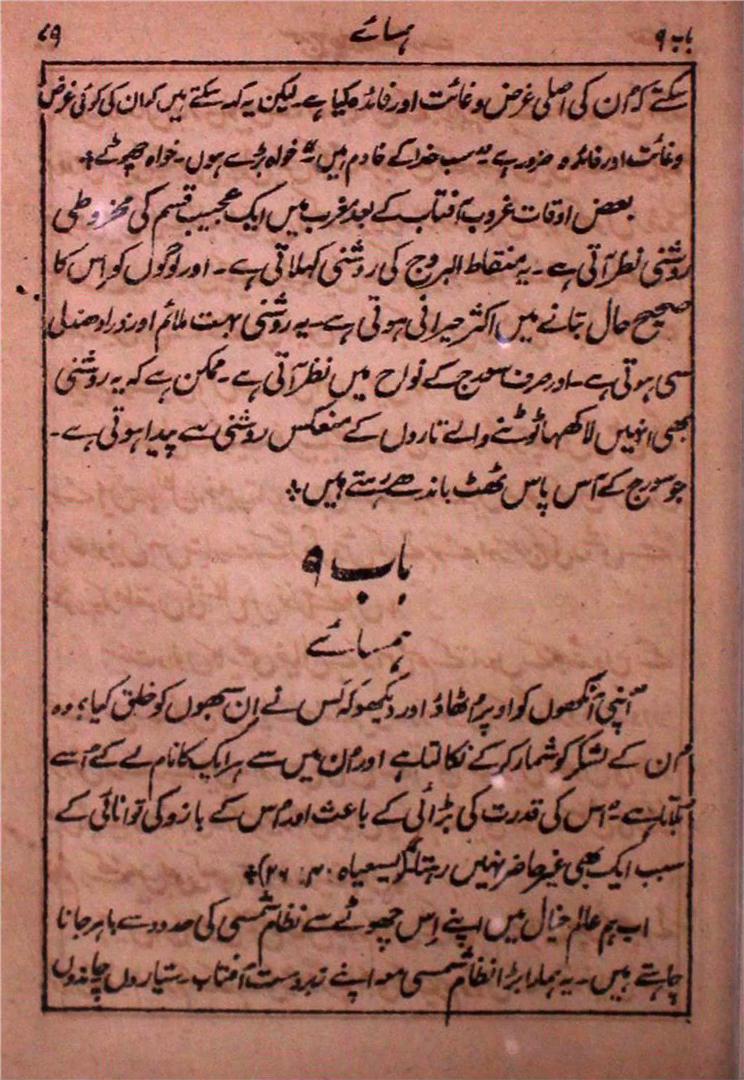 باب ۹ ہمسائے ۸۹
سکتے کہ اُن کی اصلی غرض و غائت اور فائدہ کیا ہے۔ لیکن یہ کہہ سکتے ہیں کہ ان کی کوئی غرض
و غائت اور فائدہ ضرور ہے یہ سب خدا کے خادم ہیں خواہ بڑے ہوں۔ خواہ چھوٹے ٭
بعض اوقات غروب آفتاب کے بعد مغرب میں ایک عجیب قسم کی مخروطی
روشنی نظر آتی ہے۔ یہ منقاط البروج کی روشنی کہلاتی ہے۔ اور لوگوں کو اِس کا
صحیح حال بتانے میں اکثر حیرانی ہوتی ہے۔ یہ روشنی بہت ملائم اور ذرا دھندلی
سی ہوتی ہے۔ اور صرف سورج کے نواح میں نظر آتی ہے۔ ممکن ہے کہ یہ روشنی
بھی انہیں لاکھہا ٹوٹنے والے تاروں کے منعکس روشنی سے پیدا ہوتی ہے۔
جو سورج کے آس پاس ٹھٹ باندھے رہتے ہیں ٭
باب ۹
ہمسائے
"اپنی آنکھوں کو اوپر اُٹھاؤ اور دیکھو کہ کس نے اِن سبھوں کو خلق کیا؟ وہ
اُن کے لشکر کو شمار کر کے نکالتا ہے اور اُن میں سے ہر ایک کا نام لے کے اُسے
بُلاتا ہے۔ اُس کی قدرت کی بڑائی کے باعث اور اُس کے بازو کی توانائی کے
سبب ایک بھی غیر حاضر نہیں رہتا" (یسعیاہ ۴۰: ۲۶) ٭
اب ہم عالم خیال میں اپنے اِس چھوٹے سے نظام شمسی کی حدود سے باہر جانا
چاہتے ہیں۔ یہ ہمارا بڑا نظام شمسی معہ اپنے زبردست آفتاب۔ ستیاروں چاندوں